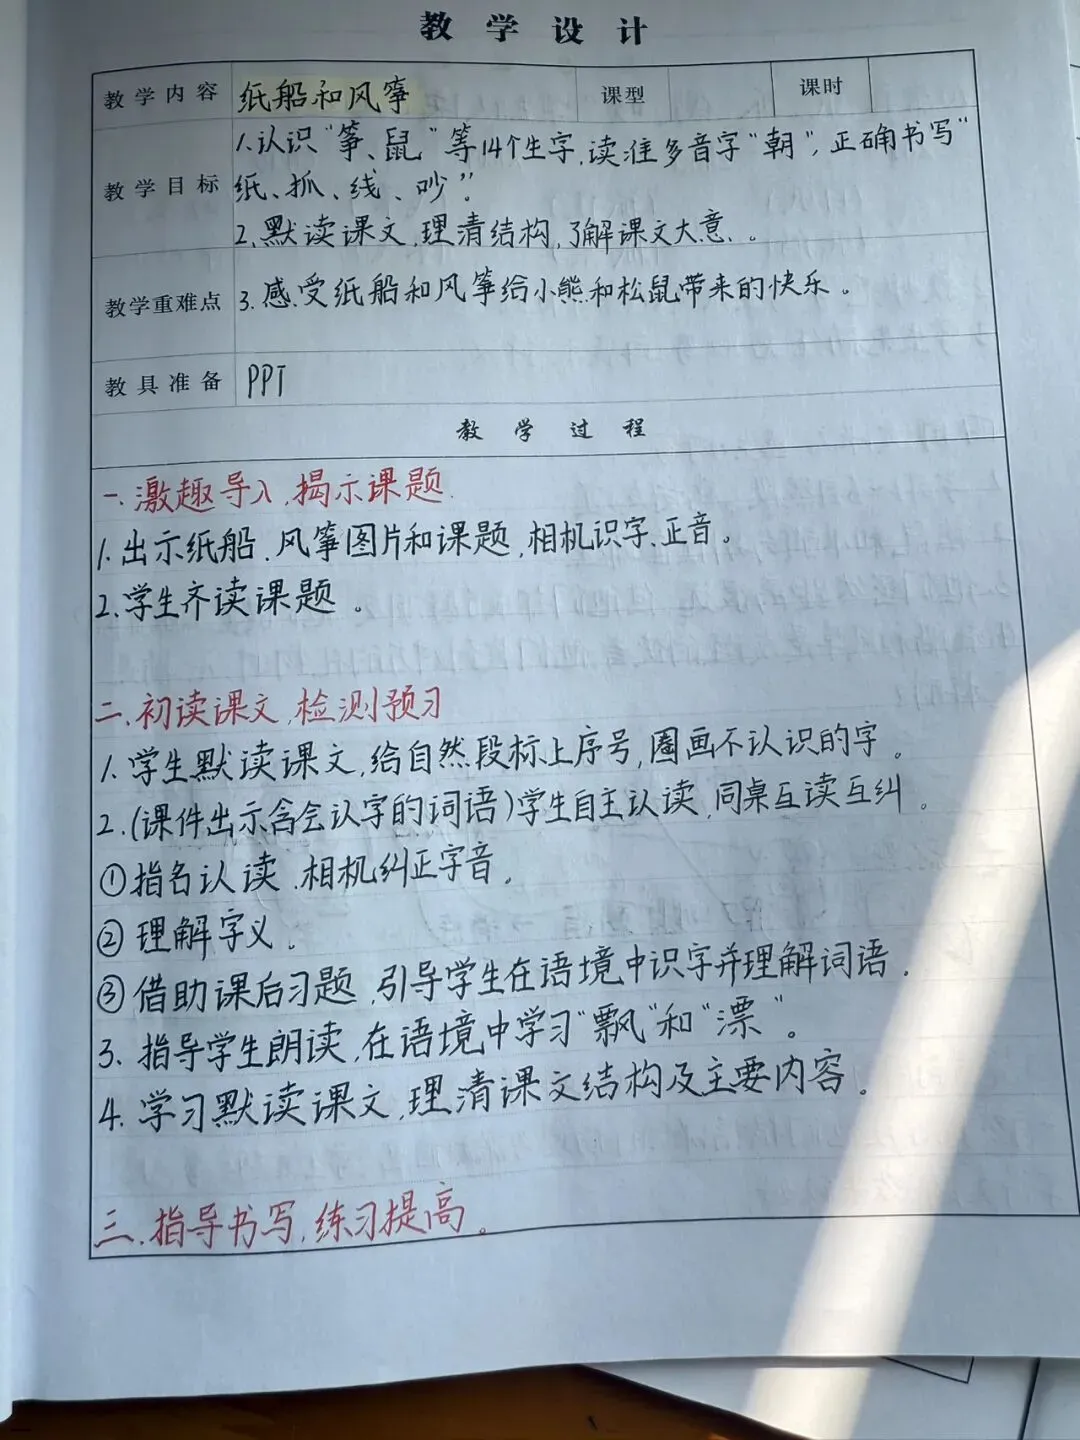 教学设计
教学内容 纸船和风筝 课型 课时
1.认识“筝、鼠”等14个生字,读准多音字“朝”,正确书写“
教学目标 纸、抓、线、吵”。
2.默读课文,理清结构,了解课文大意。
教学重难点 3.感受纸船和风筝给小熊和松鼠带来的快乐。
教具准备 PPT
教学过程
一.激趣导入,揭示课题.
1.出示纸船、风筝图片和课题,相机识字、正音。
2.学生齐读课题。
二.初读课文,检测预习
1.学生默读课文,给自然段标上序号,圈画不认识的字。
2.(课件出示含会认字的词语)学生自主认读,同桌互读互纠。
①指名认读,相机纠正字音.
②理解字义.
③借助课后习题,引导学生在语境中识字并理解词语.
3.指导学生朗读,在语境中学习“飘”和“漂”。
4.学习默读课文,理清课文结构及主要内容。
三.指导书写,练习提高。